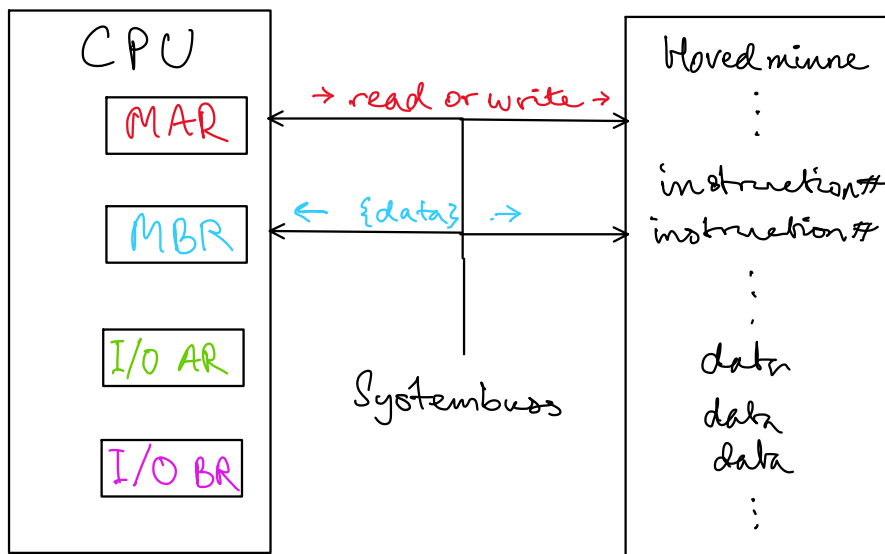 CPU
MAR
MBR
I/O AR
I/O BR
→ read or write →
← {data} →
Systembuss
Hovedminne
instruction#
instruction#
data
data
data